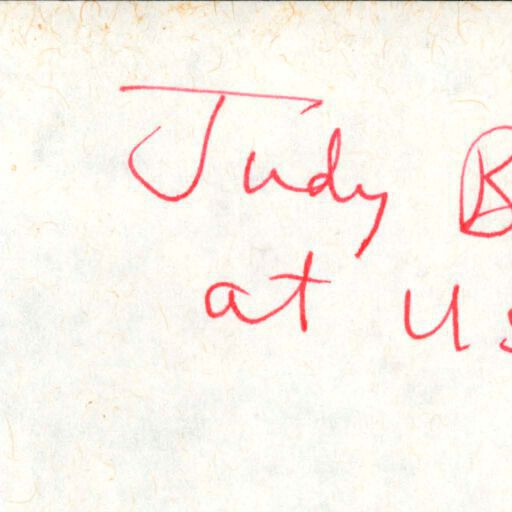 Judy B
at us